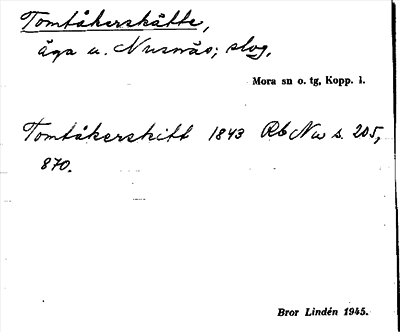 Tomtåkerskätte,
äga u. Nusnäs; slog.
Mora sn o. tg, Kopp. l.
Tomtåkerskitt 1843 Rb Nw s. 205,
870.
Bror Lindén 1945.